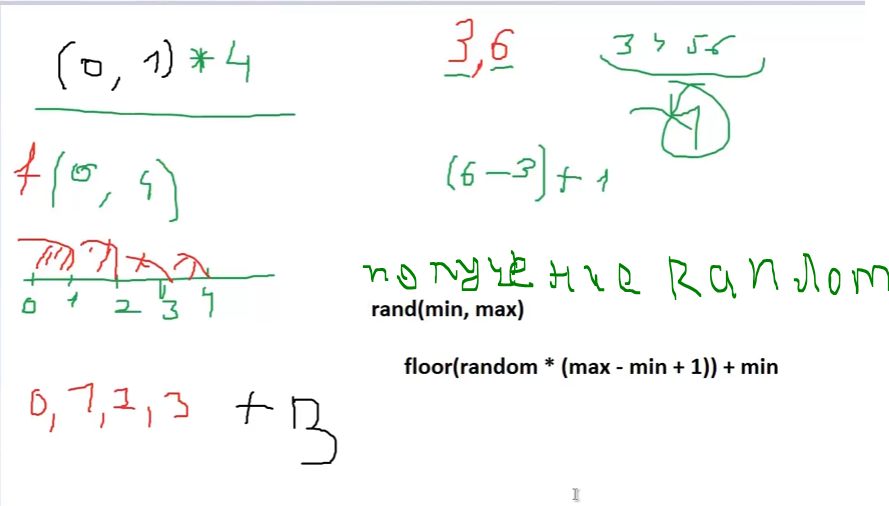 (0, 1) * 4
f (0, 4)
0 1 2 3 4
0, 1, 2, 3 + 3
3, 6
3 4 5 6
4
(6 - 3) + 1
получение Random
rand(min, max)
floor(random * (max - min + 1)) + min